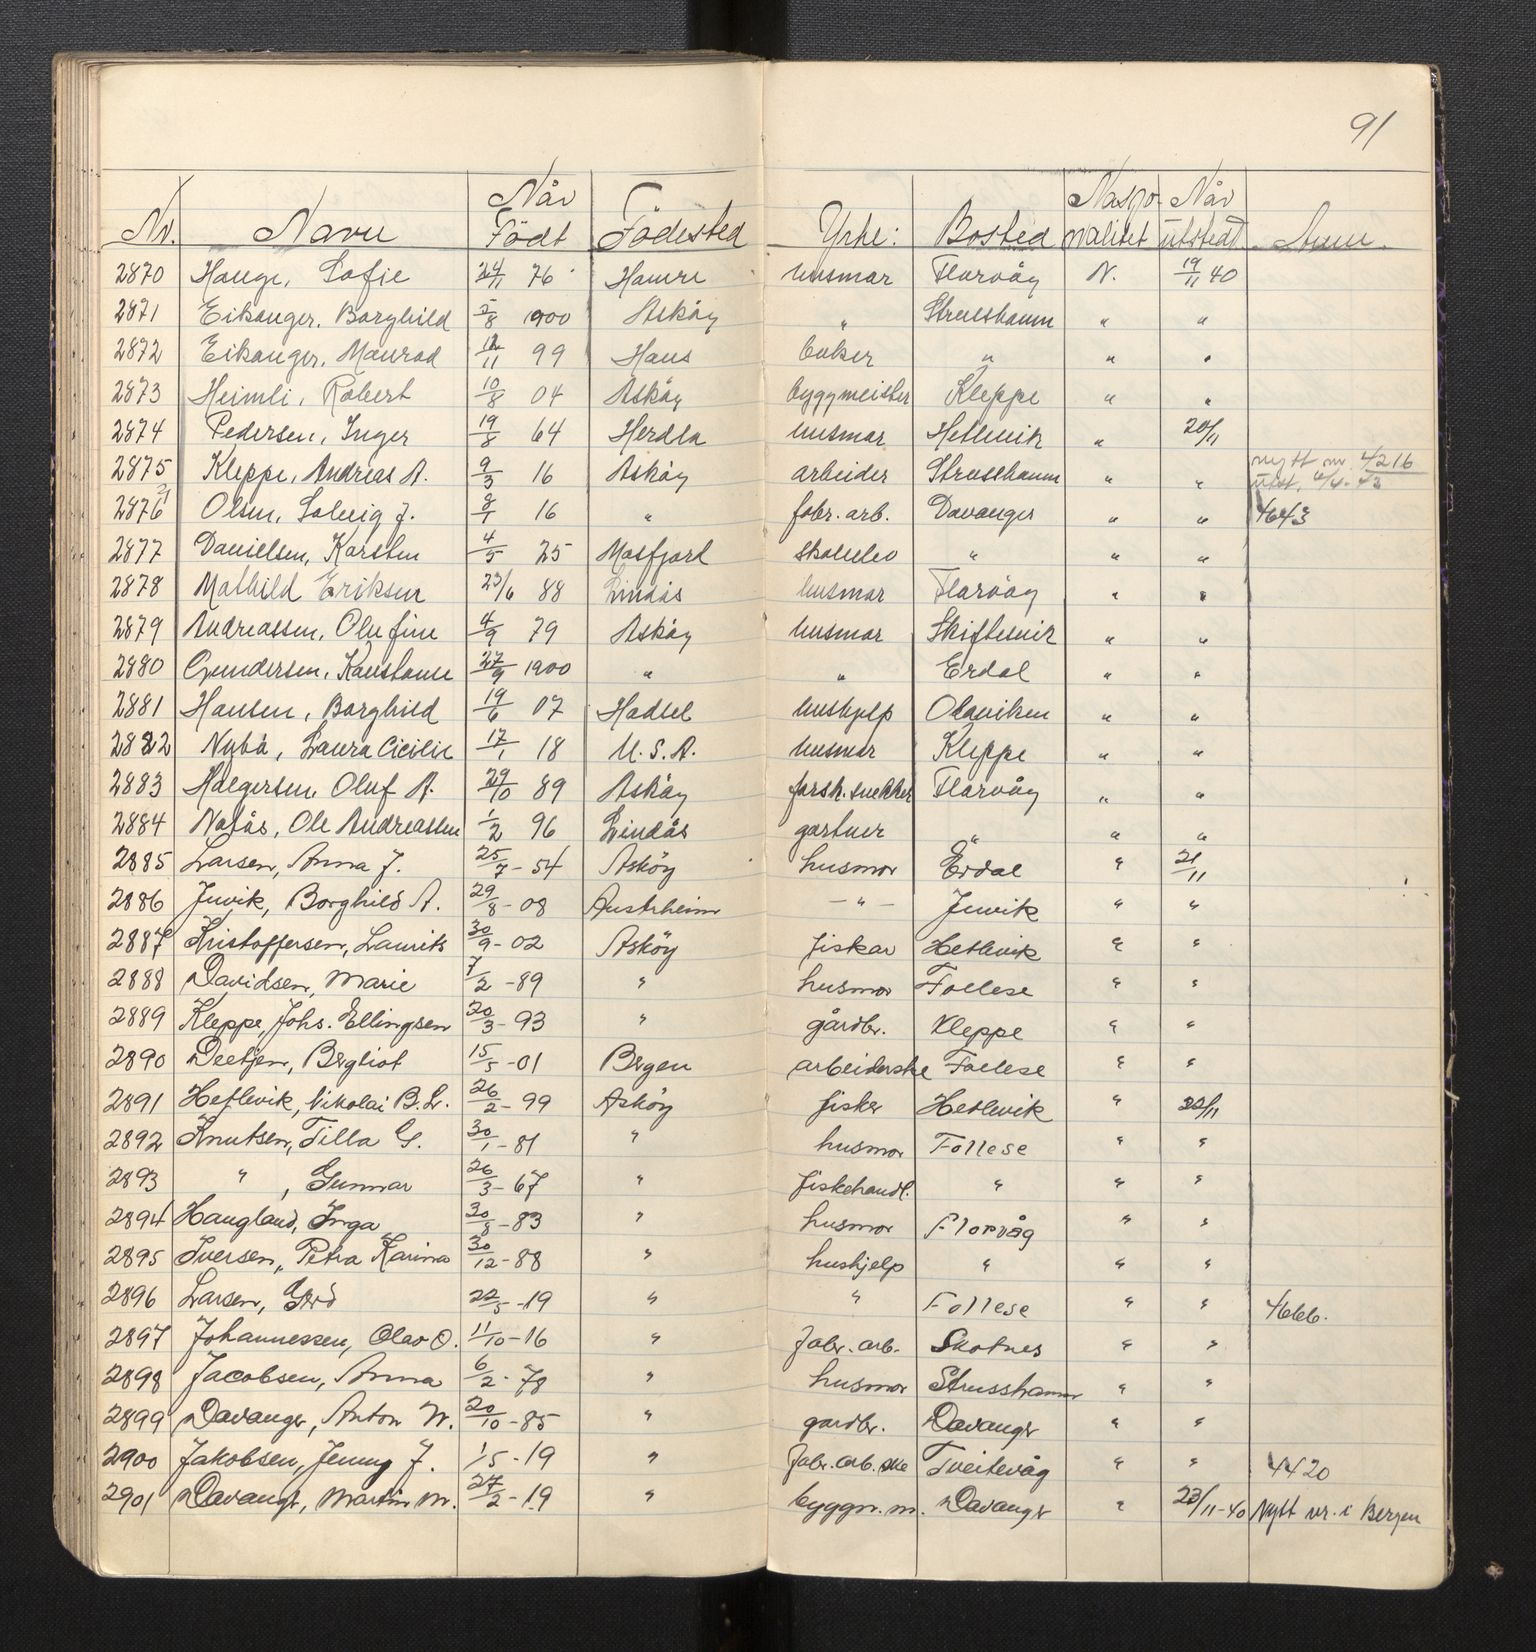 91
Nr. Navn Når Födt Födested Yrke: Bosted Nasjonalitet Når utstedt Anm.
2870 Hauge, Sofie 24/11 76 Hamre husmor Florvåg N. 19/11 40
2871 Eikanger, Borghild 5/8 1900 Asköy " Strusshamn " "
2872 Eikanger, Monrad 12/11 99 Haus baker " " "
2873 Heimli, Robert 10/8 04 Asköy byggmeister Kleppe " "
2874 Pedersen, Inger 19/8 64 Herdla husmor Hetlevik " 20/11
2875 Kleppe, Andreas A. 9/3 16 Asköy arbeider Strusshamn " " nytt nr. 4216 utst.
2876 Olsen, Solveig J. 8/1 16 " fabr. arb. Davanger " " 4643
2877 Danielsen, Karsten 4/5 25 Masfjord skoleelev " " "
2878 Mathild Eriksen 23/6 88 Lindås husmor Florvåg " "
2879 Andreassen, Olefine 4/9 79 Asköy husmor Skiftesvik " "
2880 Gundersen, Konstanse 27/9 1900 " " Erdal " "
2881 Hansen, Borghild 19/6 07 Hadsel hushjelp Olaviken " "
2882 Nybö, Laura Cicilie 17/1 18 U.S.A. husmor Kleppe " "
2883 Holgersen, Oluf A. 29/10 89 Asköy forsk. snekker Florvåg " "
2884 Natås, Ole Andreassen 1/2 96 Lindås gartner " " "
2885 Larsen, Anna J. 25/7-54 Asköy husmor Erdal " 21/11
2886 Juvik, Borghild A. 29/8-08 Austrheim -"- Juvik " "
2887 Kristoffersen, Laurits 30/9-02 Asköy fiskar Hetlevik " "
2888 Davidsen, Marie 7/2-89 " husmor Follese " "
2889 Kleppe, Johs. Ellingsen 20/3-93 " gårdbr. Kleppe " "
2890 Deetjen, Bergliot 15/5-01 Bergen arbeiderske Follese " "
2891 Hetlevik, Nikolai B. L. 26/2-99 Asköy fisker Hetlevik " 22/11
2892 Knutsen, Tilla G. 30/1-81 " husmor Follese " "
2893 ", Gunnar 26/3-67 " fiskehandl. " " "
2894 Haugland, Inga 30/8-83 " husmor Florvåg " "
2895 Iversen, Petra Karina 30/12-88 " hushjelp " " "
2896 Larsen, Gerd 22/5-19 " " Follese " " 4666.
2897 Johannessen, Olav O. 11/10-16 " fabr. arb. Skotnes " "
2898 Jacobsen, Anna 6/2-78 " husmor Strusshamn " "
2899 Davanger, Anton W. 20/10-85 " gardbr. Davanger " "
2900 Jakobsen, Jenny J. 1/5-19 " fabr. arb. ske Tveitevåg " " 4420
2901 Davanger, Martin M. 27/2-19 " byggn. m. Davanger " 23/11-40 Nytt nr. i Bergen